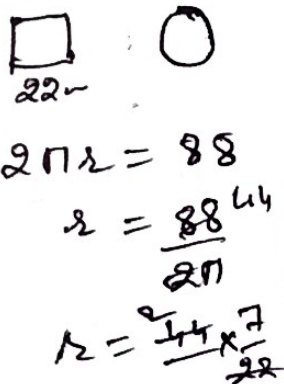 22~
2πr = 88
r = 88 44
2π
r = 2 44 × 7
22